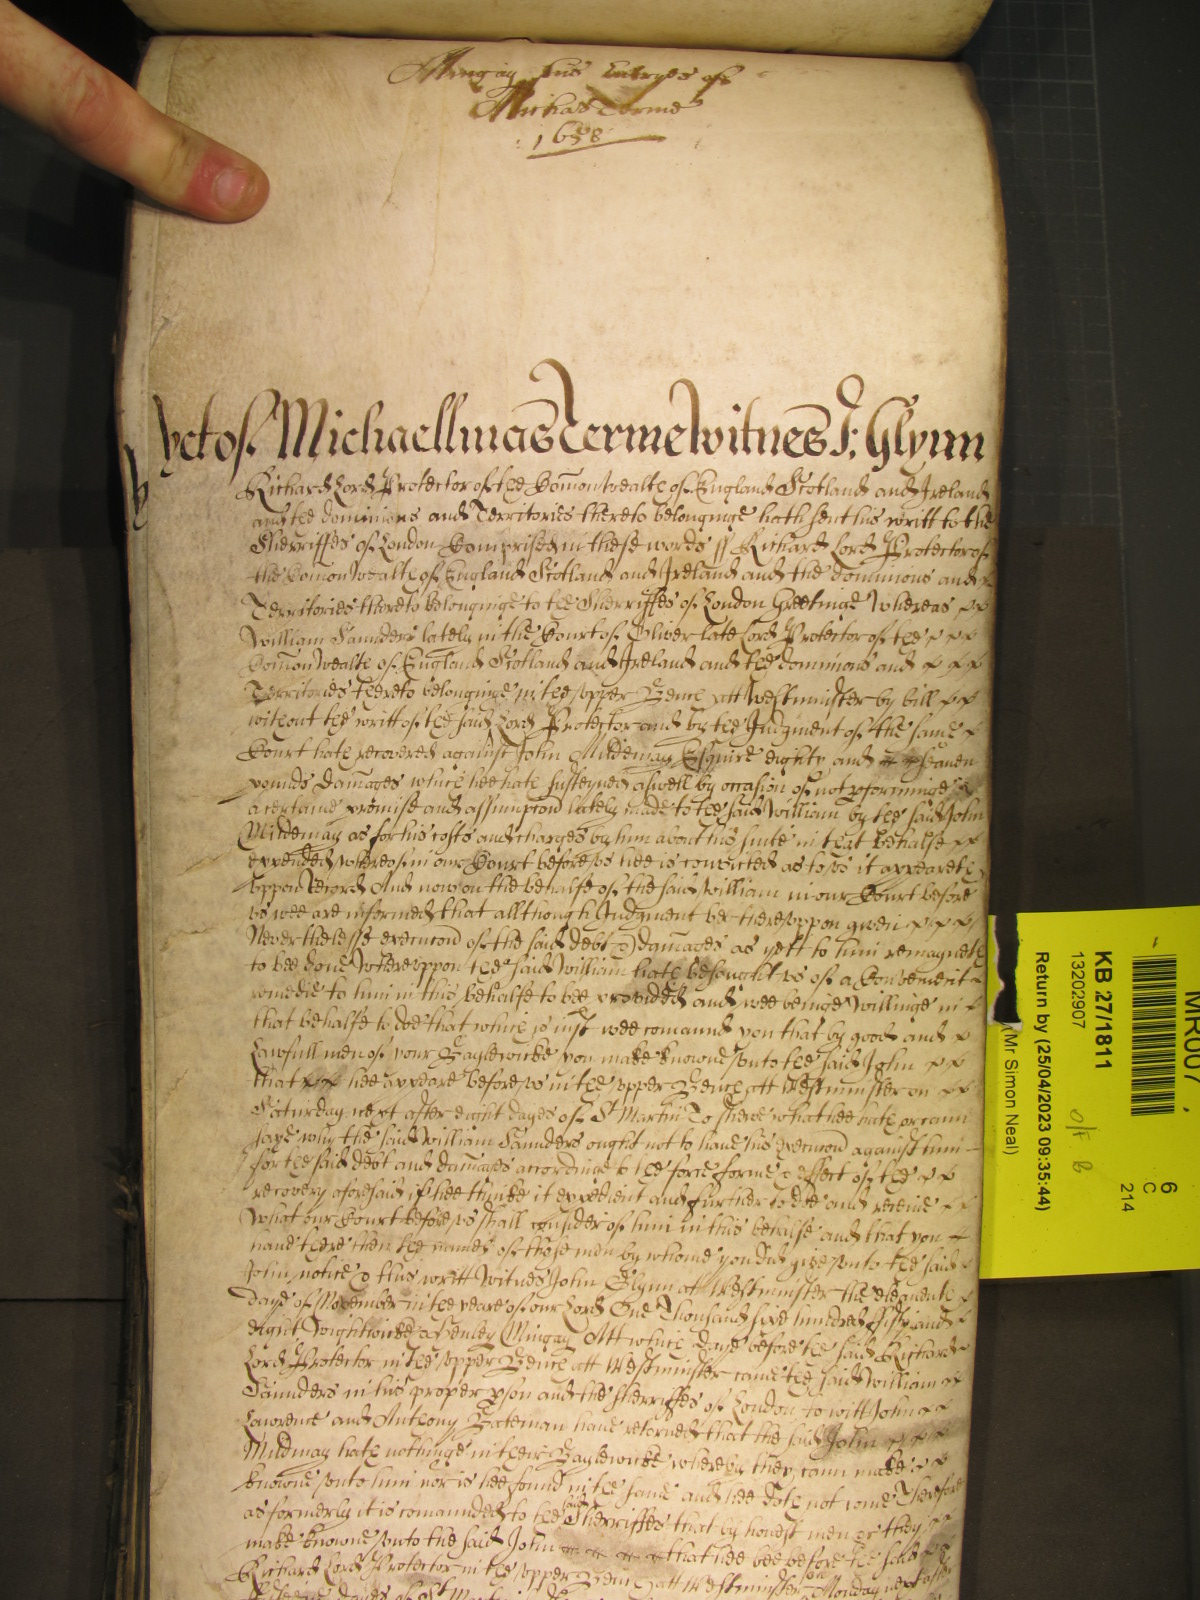 Mingay his Entryes of
Michas Terme
1658
Yet of Michaellmas Terme Witnes J: Glynn
Richard Lord Protector of the Comonwealth of England Scotland and Ireland
and the dominions and Territories thereto belonginge hath sent his writt to the
Sherriffes of London Comprised in these words ss Richard Lord Protector of
the Comonwealth of England Scotland and Ireland and the dominions and
Territories thereto belonginge to the Sherriffes of London Greetinge Whereas
William Saunders lately in the Court of Oliver late Lord Protector of the
Comonwealth of England Scotland and Ireland and the dominions and
Territories thereto belonginge in the upper Bench att Westminster by bill
without the writt of the said Lord Protector and by the Judgment of the same
Court hath recovered against John Mildemay Esquire eighty and seaven
pounds damages which hee hath susteyned aswell by occasion of not pforminge
a certaine promise and assumpcon lately made to the said William by the said John
Mildemay as for his costs and charges by him about his suite in that behalfe
expended whereof in our Court before us hee is convicted as to us it appeareth
uppon Record And now on the behalfe of the said William in our Court before
us wee are informed that allthough Judgment bee thereuppon given
Neverthelesse execucon of the said debt & damages as yett to him remayneth
to bee done Whereuppon the said William hath besought us of a Convenient
remedie to him in this behalfe to bee provided and wee beinge Willinge in
that behalfe to doe that which is just wee comaund you that by good and
Lawfull men of your Baylewicke you make knowne unto the said John
that hee appeare before us in the upper Bench att Westminster on
Saturday next after eight dayes of St Martin To shewe what hee hath or cann
saye why the said William Saunders ought not to have his execucon against him
for the said debt and damages accordinge to the force forme & effect of the
recovery aforesaid if hee thinke it expedient and further to doe and receive
What our Court before us shall consider of him in this behalfe and that you
have there then the names of those men by whome you did give unto the said
John notice & this writt Witnes John Glynn at Westminster the eleaventh
daye of November in the yeare of our Lord One Thousand sixe hundred fifty and
eight Wightwicke & Henley Mingay Att which daye before the said Richard
Lord Protector in the upper Bench att Westminster came the said William
Saunders in his proper pson and the Sherriffes of London to witt John
Lawrence and Anthony Bateman have retorned that the said John
Mildmay hath nothinge in their Baylewicke whereby they cann make
knowne unto him nor is hee found in the same and hee doth not come Therefore
as formerly it is comaunded to the said Sherriffes that by honest men &c they
make knowne unto the said John that hee bee before the said
Richard Lord Protector in the upper Bench att Westminster on Monday next after
dayes of St Martin
MR007
6
C
214
KB 27/1811
13202907
Return by (25/04/2023 09:35:44)
(Mr Simon Neal)